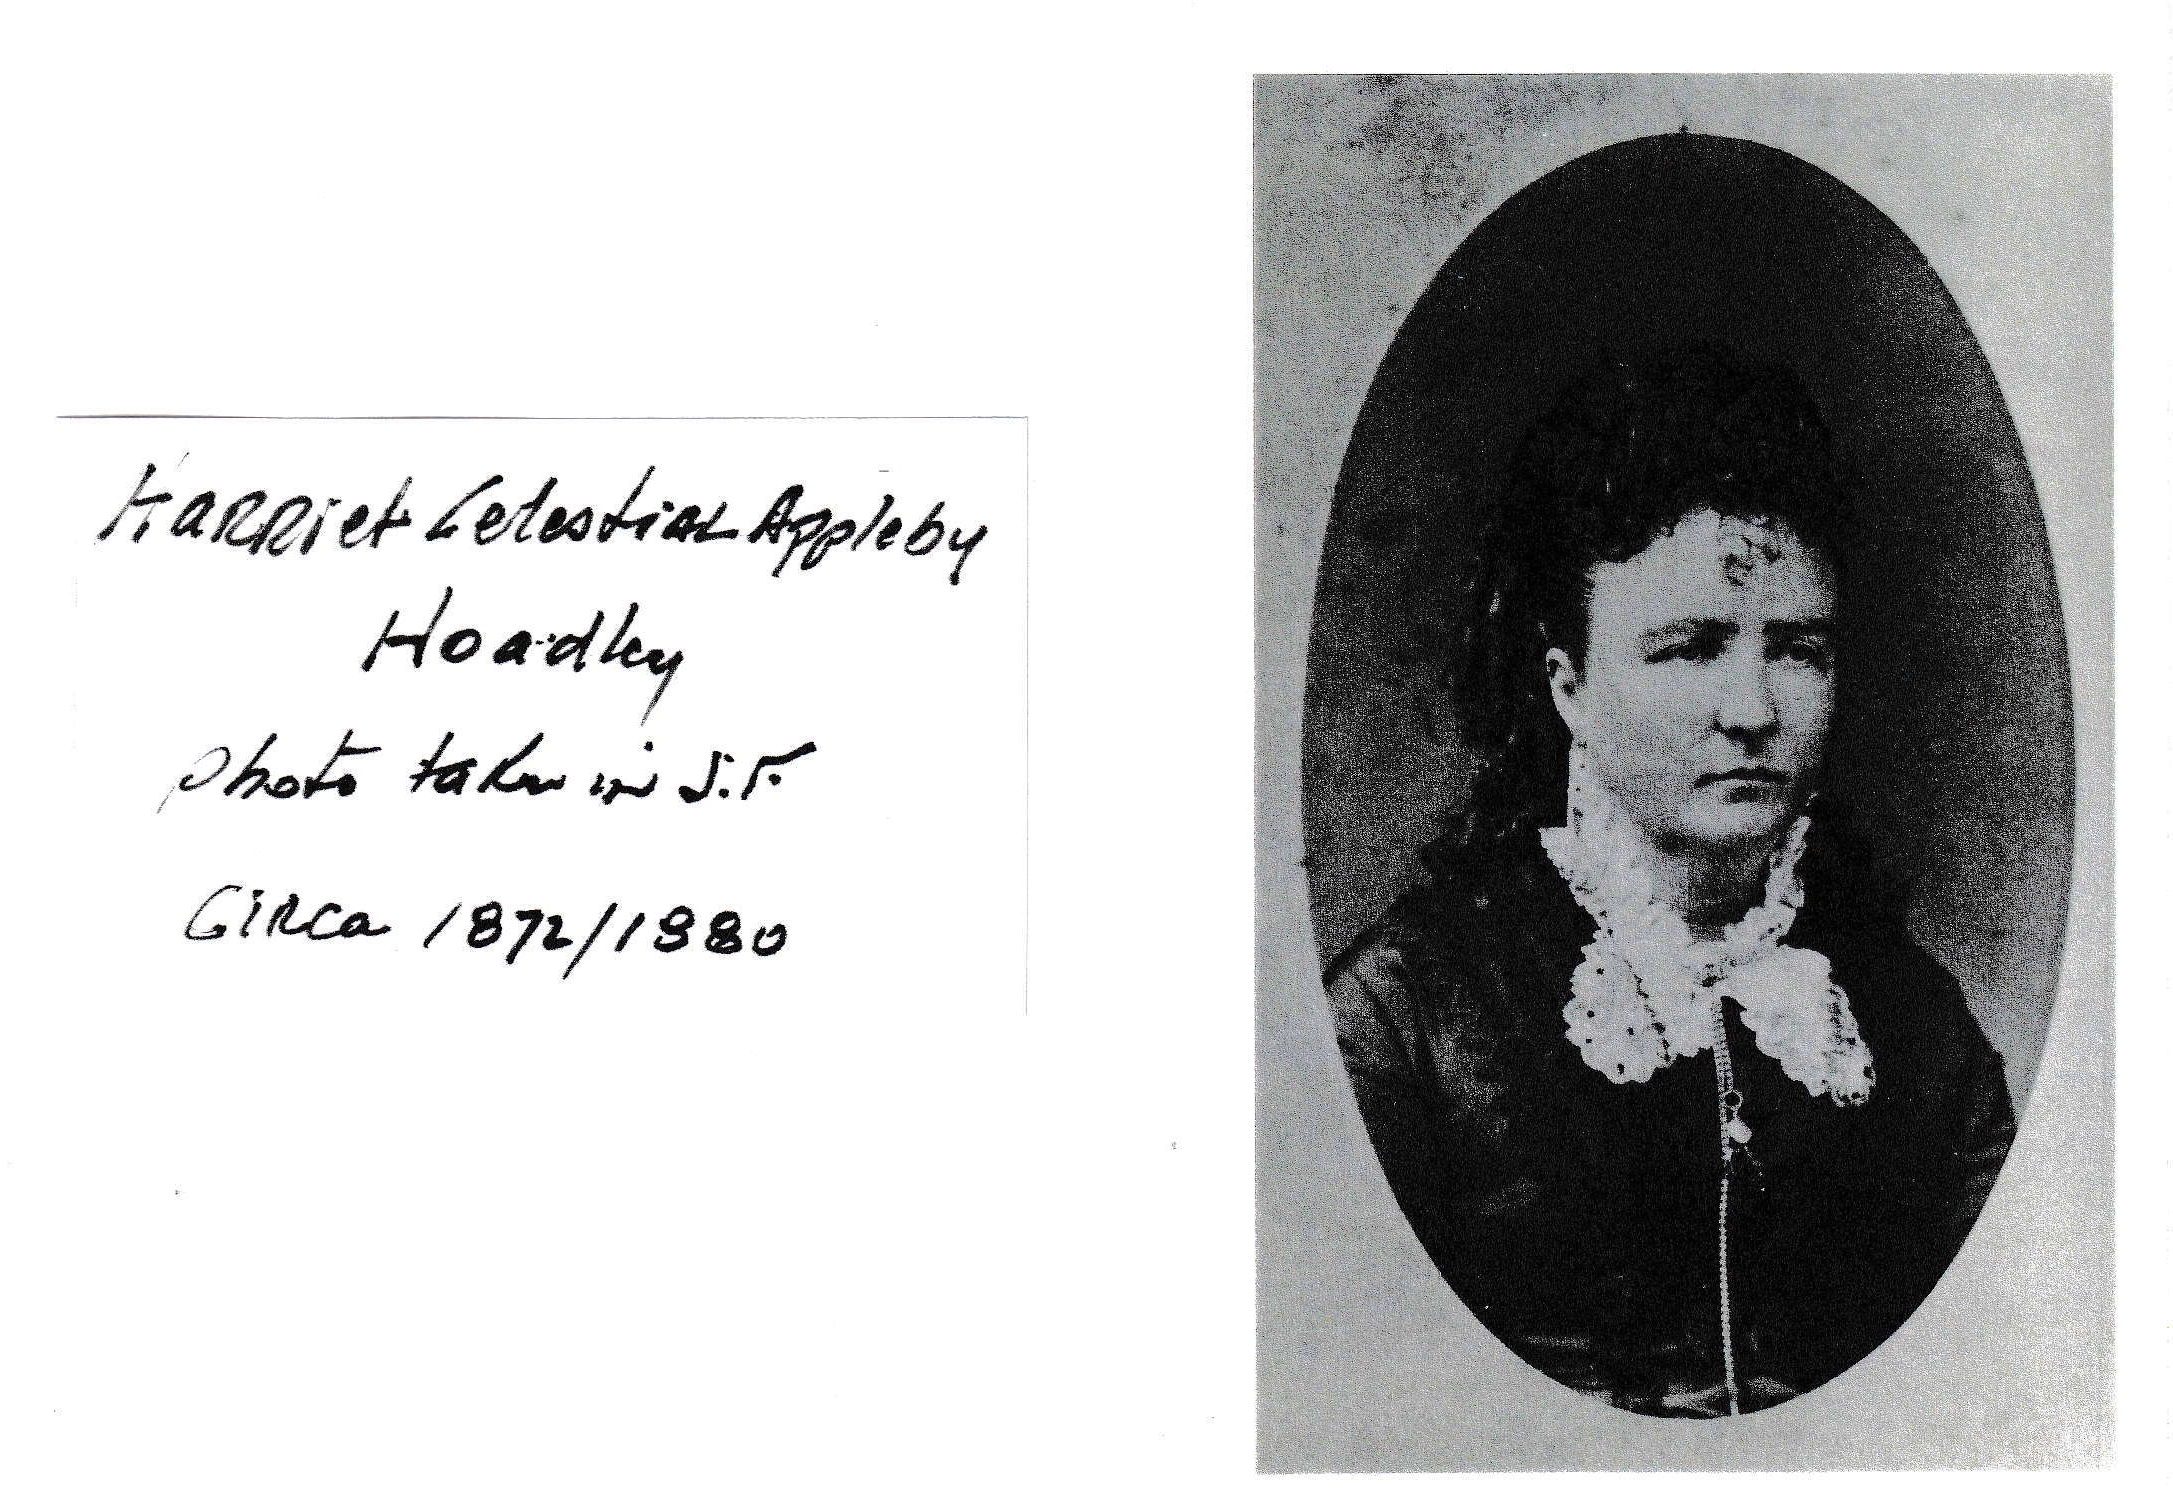 Harriet Celestial Appleby
Hoadley
photo taken in S.F.
Circa 1872/1880